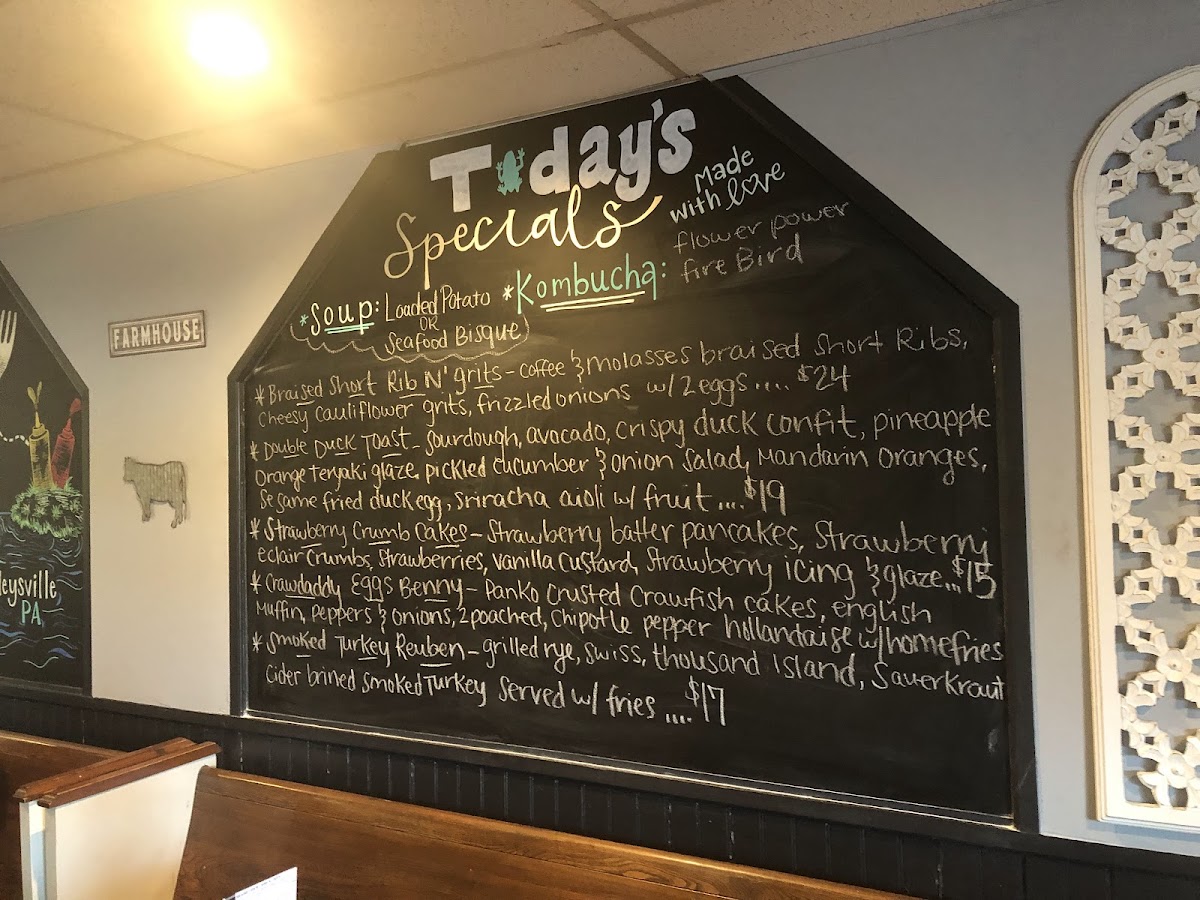 Today's
Specials
Made
with love
flower power
fire Bird
*Kombucha:
*Soup: Loaded Potato
OR
Seafood Bisque
*Braised Short Rib N' grits - coffee & molasses braised short Ribs,
Cheesy cauliflower grits, frizzled onions w/ 2 eggs.... $24
*Double Duck Toast - Sourdough, avocado, crispy duck confit, pineapple
Orange teryaki glaze, pickled cucumber & onion salad, Mandarin oranges,
Sesame fried duck egg, sriracha aioli w/ fruit ... $19
*Strawberry Crumb Cakes - Strawberry batter pancakes, Strawberry
eclair crumbs, strawberries, vanilla custard, strawberry icing & glaze...$15
*Crawdaddy Eggs Benny - Panko crusted crawfish cakes, english
Muffin, peppers & onions, 2 poached, chipotle pepper hollandaise w/ homefries
*Smoked Turkey Reuben - grilled rye, swiss, thousand Island, Sauerkraut
Cider brined smoked Turkey served w/ fries .... $17
FARMHOUSE
leysville
PA